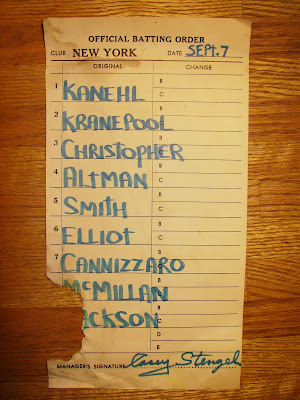 OFFICIAL BATTING ORDER
CLUB NEW YORK DATE SEPT. 7
ORIGINAL CHANGE
1 KANEHL B
C
2 KRANEPOOL B
C
3 CHRISTOPHER B
C
4 ALTMAN B
C
5 SMITH B
C
6 ELLIOT B
C
7 CANNIZZARO B
C
McMILLAN B
C
ACKSON B
C
D
E
MANAGER'S SIGNATURE Casey Stengel